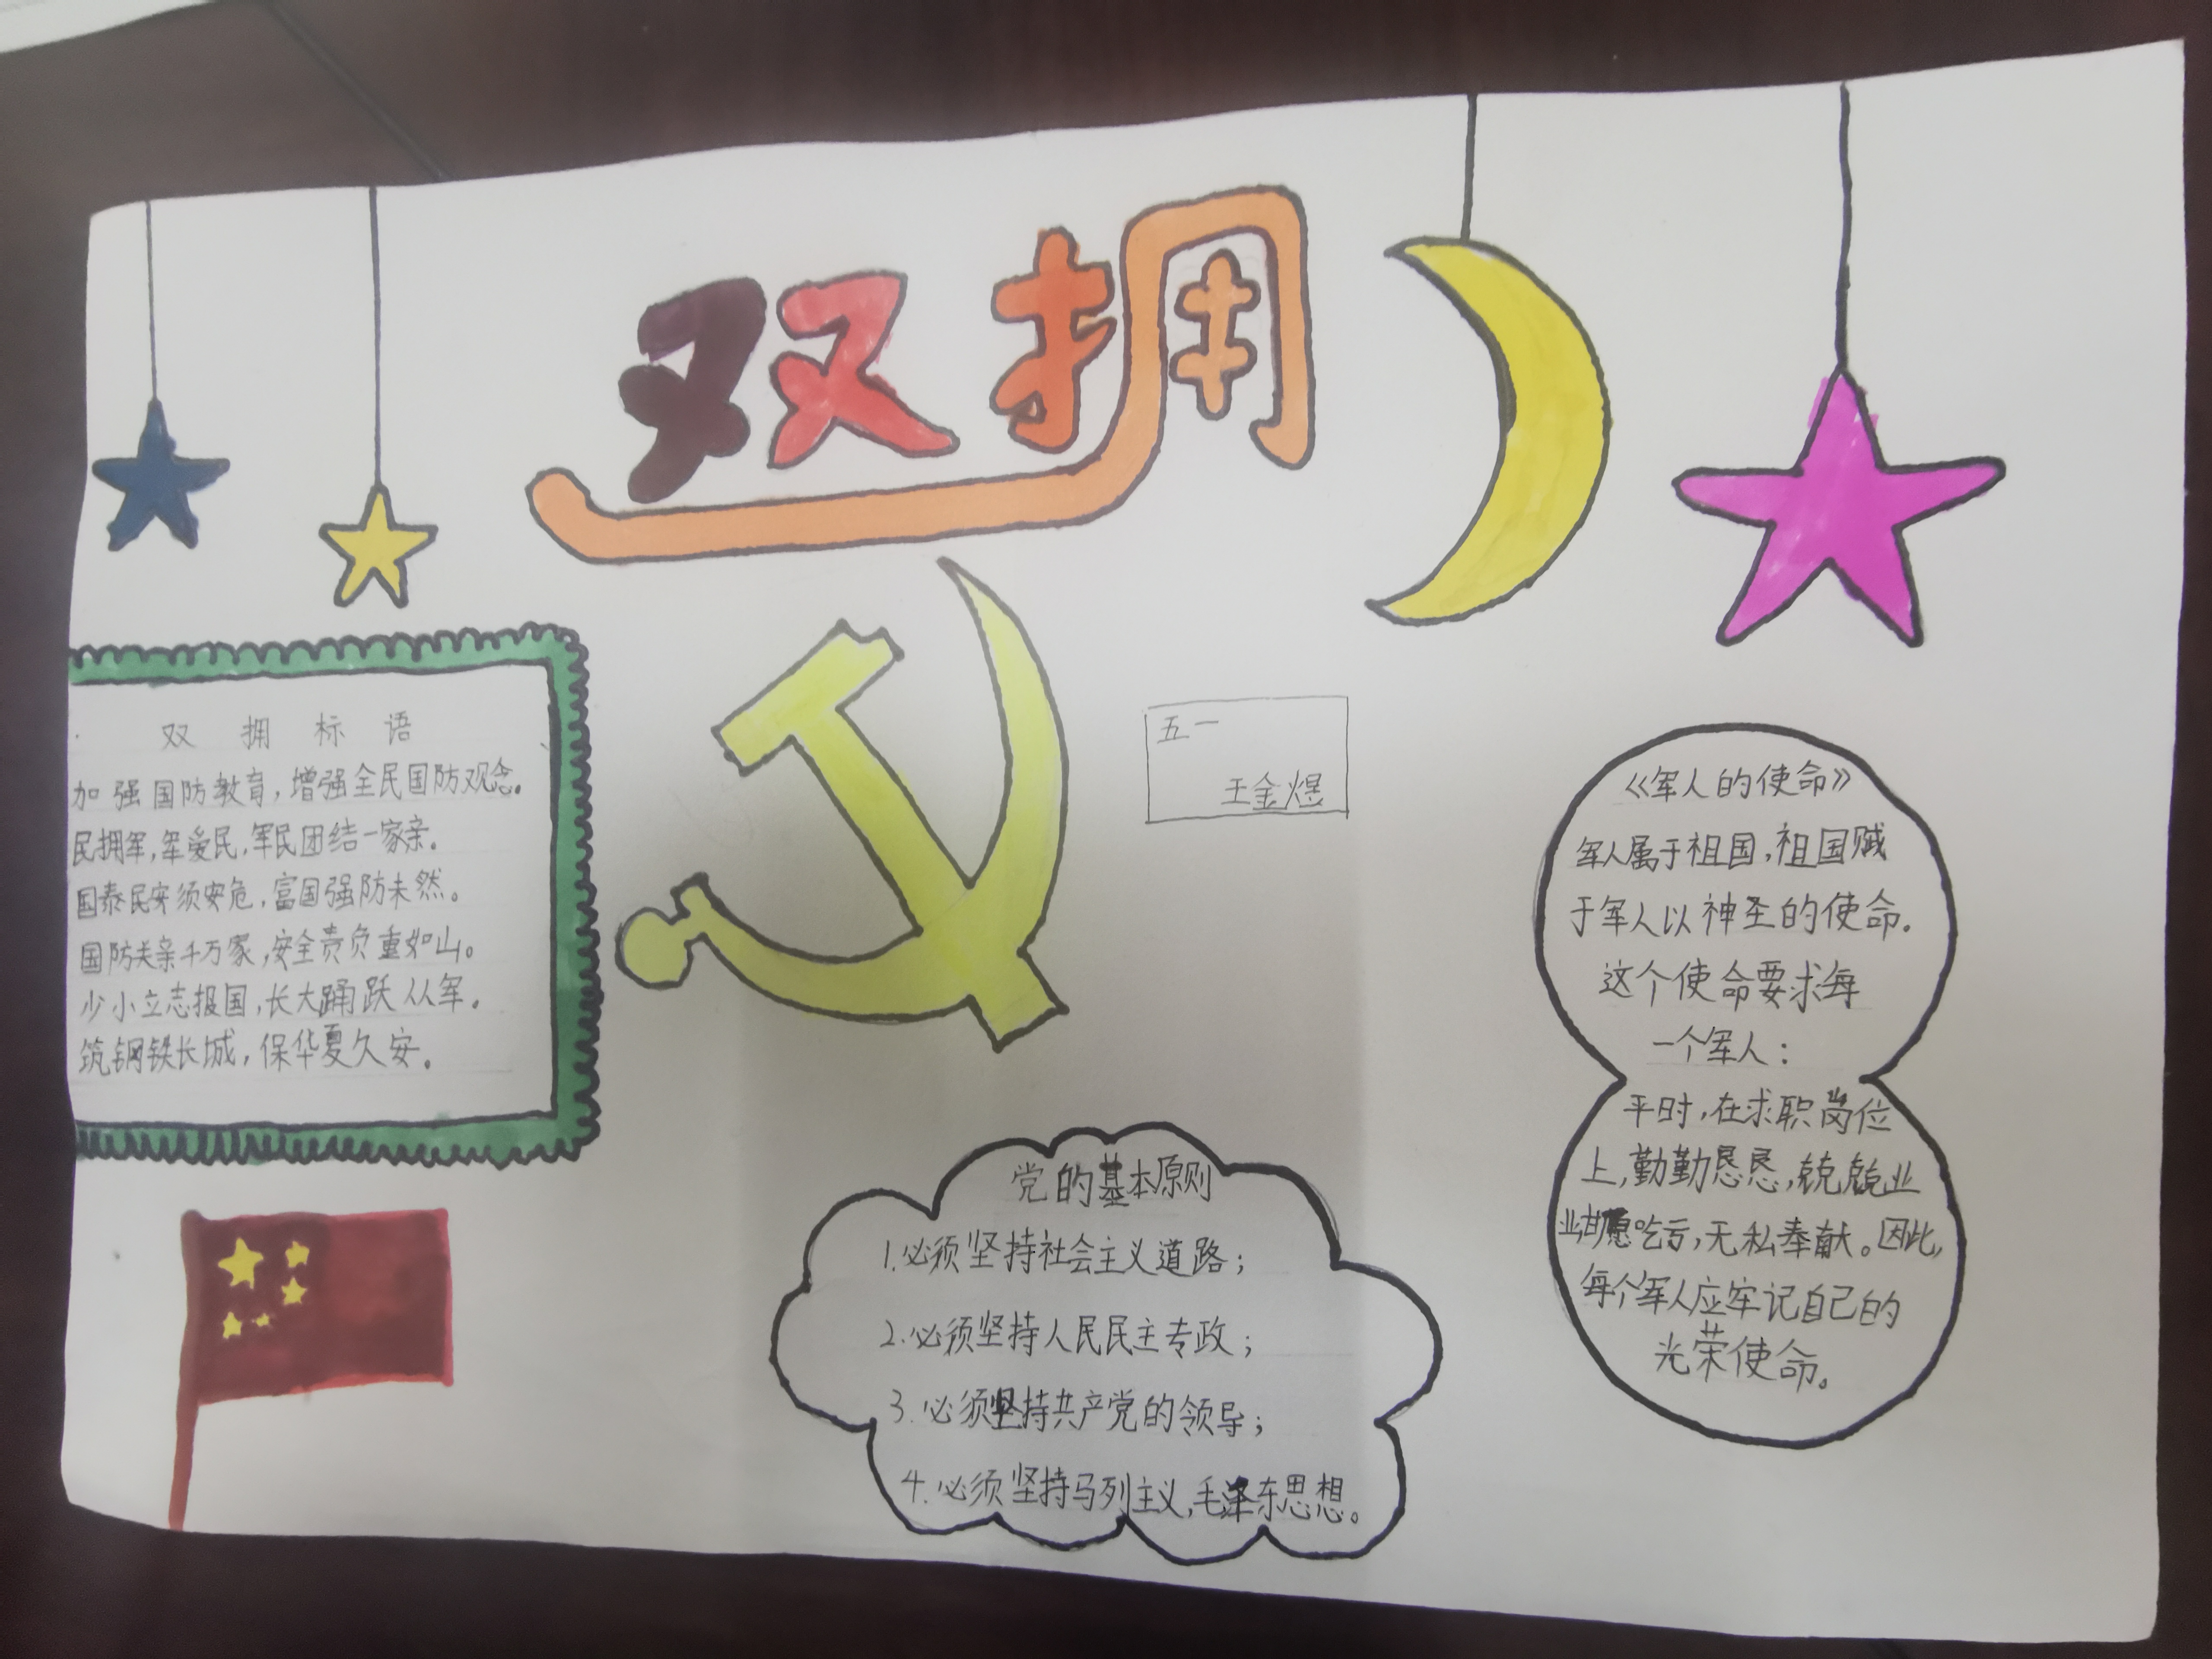 双拥
双拥标语
加强国防教育，增强全民国防观念。
民拥军，军爱民，军民团结一家亲。
国泰民安须安危，富国强防未然。
国防关亲千万家，安全责负重如山。
少小立志报国，长大踊跃从军。
筑钢铁长城，保华夏久安。
五一
王金煜
党的基本原则
1.必须坚持社会主义道路；
2.必须坚持人民民主专政；
3.必须坚持共产党的领导；
4.必须坚持马列主义，毛泽东思想。
《军人的使命》
军人属于祖国，祖国赋
于军人以神圣的使命.
这个使命要求每
一个军人：
平时，在求职岗位
上，勤勤恳恳，兢兢业
业甘愿吃亏，无私奉献。因此，
每个军人应牢记自己的
光荣使命。